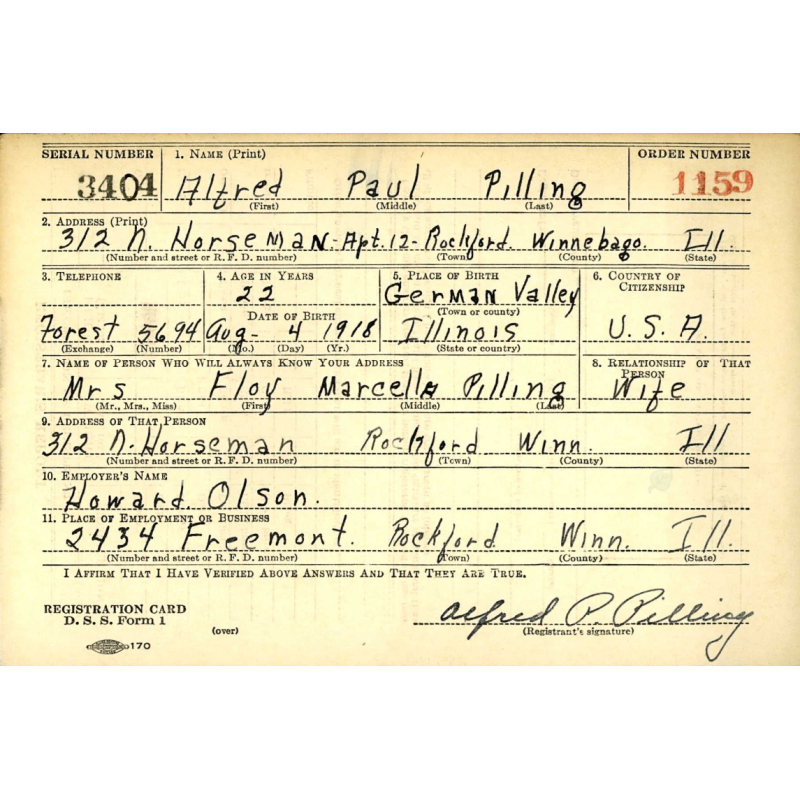 SERIAL NUMBER 1. NAME (Print) ORDER NUMBER
3404 Alfred Paul Pilling 1159
(First) (Middle) (Last)
2. ADDRESS (Print)
312 N. Horseman - Apt. 12 - Rockford. Winnebago. Ill.
(Number and street or R. F. D. number) (Town) (County) (State)
3. TELEPHONE 4. AGE IN YEARS 5. PLACE OF BIRTH 6. COUNTRY OF CITIZENSHIP
22 German Valley
DATE OF BIRTH (Town or county)
Forest 5694 Aug- 4 1918 Illinois U.S.A.
(Exchange) (Number) (Mo.) (Day) (Yr.) (State or country)
7. NAME OF PERSON WHO WILL ALWAYS KNOW YOUR ADDRESS 8. RELATIONSHIP OF THAT PERSON
Mrs Floy Marcella Pilling Wife
(Mr., Mrs., Miss) (First) (Middle) (Last)
9. ADDRESS OF THAT PERSON
312 N. Horseman Rockford Winn. Ill
(Number and street or R. F. D. number) (Town) (County) (State)
10. EMPLOYER'S NAME
Howard. Olson.
11. PLACE OF EMPLOYMENT OR BUSINESS
2434 Freemont. Rockford Winn. Ill.
(Number and street or R. F. D. number) (Town) (County) (State)
I AFFIRM THAT I HAVE VERIFIED ABOVE ANSWERS AND THAT THEY ARE TRUE.
REGISTRATION CARD
D. S. S. Form 1 Alfred P. Pilling
(over) (Registrant's signature)
170